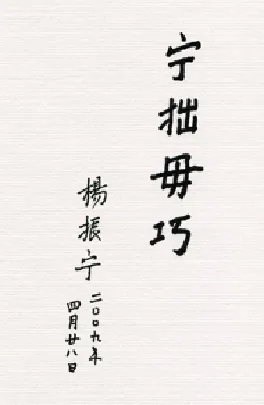 宁拙毋巧
楊振宁
二〇〇九年
四月廿八日